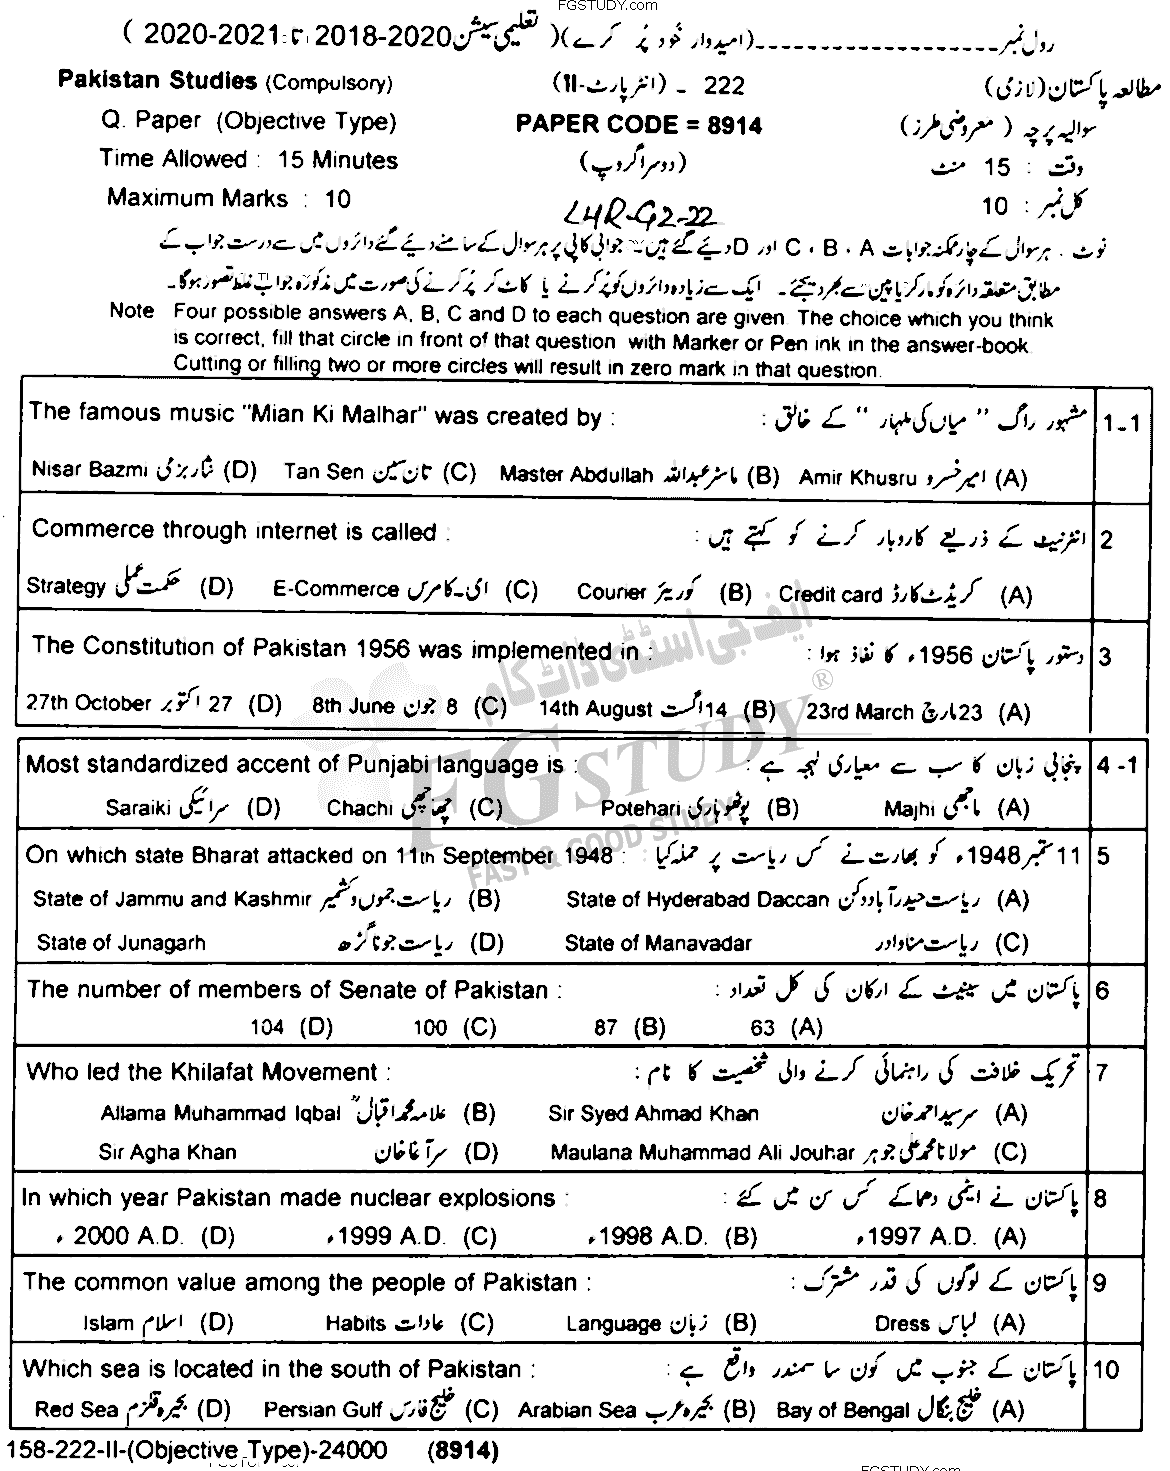 FGSTUDY.com
رول نمبر ـ ـ ـ ـ ـ ـ ـ ـ ـ ـ ـ ـ ـ ـ ـ ـ ـ (امیدوار خود پُر کرے) ( تعلیمی سیشن 2018-2020 تا 2020-2021 )
Pakistan Studies (Compulsory) 222 ـ (انٹر پارٹ-II) مطالعہ پاکستان (لازمی)
Q. Paper (Objective Type) PAPER CODE = 8914 سوالیہ پرچہ ( معروضی طرز )
Time Allowed : 15 Minutes (دوسرا گروپ) وقت : 15 منٹ
Maximum Marks : 10 LHR-G2-22 کل نمبر : 10
نوٹ ۔ ہر سوال کے چار ممکنہ جوابات A ، B ، C اور D دئیے گئے ہیں۔ جوابی کاپی پر ہر سوال کے سامنے دیئے گئے دائروں میں سے درست جواب کے
مطابق متعلقہ دائرہ کو مارکر یا پین سے بھر دیجئے۔ ایک سے زیادہ دائروں کو پُر کرنے یا کاٹ کر پُر کرنے کی صورت میں مذکورہ جواب غلط تصور ہوگا۔
Note Four possible answers A, B, C and D to each question are given. The choice which you think
is correct, fill that circle in front of that question with Marker or Pen ink in the answer-book.
Cutting or filling two or more circles will result in zero mark in that question.
The famous music "Mian Ki Malhar" was created by : مشہور راگ " میاں کی ملہار " کے خالق : 1-1
Nisar Bazmi نثار بزمی (D) Tan Sen تان سین (C) Master Abdullah ماسٹر عبداللہ (B) Amir Khusru امیر خسرو (A)
Commerce through internet is called : انٹرنیٹ کے ذریعے کاروبار کرنے کو کہتے ہیں : 2
Strategy حکمت عملی (D) E-Commerce ای۔کامرس (C) Courier کوریئر (B) Credit card کریڈٹ کارڈ (A)
The Constitution of Pakistan 1956 was implemented in : دستور پاکستان 1956ء کا نفاذ ہوا : 3
27th October 27 اکتوبر (D) 8th June 8 جون (C) 14th August 14 اگست (B) 23rd March 23 مارچ (A)
Most standardized accent of Punjabi language is : پنجابی زبان کا سب سے معیاری لہجہ ہے : 4 -1
Saraiki سرائیکی (D) Chachi چھاچھی (C) Potehari پوٹھوہاری (B) Majhi ماجھی (A)
On which state Bharat attacked on 11th September 1948 : 11 ستمبر 1948ء کو بھارت نے کس ریاست پر حملہ کیا 5
State of Jammu and Kashmir ریاست جموں و کشمیر (B) State of Hyderabad Daccan ریاست حیدر آباد دکن (A)
State of Junagarh ریاست جونا گڑھ (D) State of Manavadar ریاست مناوادر (C)
The number of members of Senate of Pakistan : پاکستان میں سینیٹ کے ارکان کی کل تعداد : 6
104 (D) 100 (C) 87 (B) 63 (A)
Who led the Khilafat Movement : تحریک خلافت کی راہنمائی کرنے والی شخصیت کا نام : 7
Allama Muhammad Iqbal علامہ محمد اقبالؒ (B) Sir Syed Ahmad Khan سرسید احمد خان (A)
Sir Agha Khan سر آغا خان (D) Maulana Muhammad Ali Jouhar مولانا محمد علی جوہر (C)
In which year Pakistan made nuclear explosions : پاکستان نے ایٹمی دھماکے کس سن میں کئے : 8
ء 2000 A.D. (D) ء1999 A.D. (C) ء1998 A.D. (B) ء1997 A.D. (A)
The common value among the people of Pakistan : پاکستان کے لوگوں کی قدر مشترک : 9
Islam اسلام (D) Habits عادات (C) Language زبان (B) Dress لباس (A)
Which sea is located in the south of Pakistan : پاکستان کے جنوب میں کون سا سمندر واقع ہے : 10
Red Sea بحیرہ قلزم (D) Persian Gulf خلیج فارس (C) Arabian Sea بحیرہ عرب (B) Bay of Bengal خلیج بنگال (A)
158-222-II-(Objective Type)-24000 (8914)
ایف جی اسٹڈی ڈاٹ کام
FG STUDY ®
FAST & GOOD STUDY
FGSTUDY.com